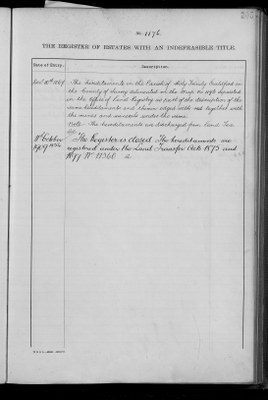 No. 1176.
THE REGISTER OF ESTATES WITH AN INDEFEASIBLE TITLE.
Date of Entry.
Description.
The hereditaments in the Parish of Holy Trinity Guildford in
the County of Surrey delineated on the Map No. 1176 deposited
in the Office of Land Registry as part of the description of the
same hereditaments and thereon edged with red together with
the mines and minerals under the same
Note. The hereditaments are discharged from Land Tax
October
The Register is closed. The hereditaments are
registered under the Land Transfer Acts 1875 and
1897 No.